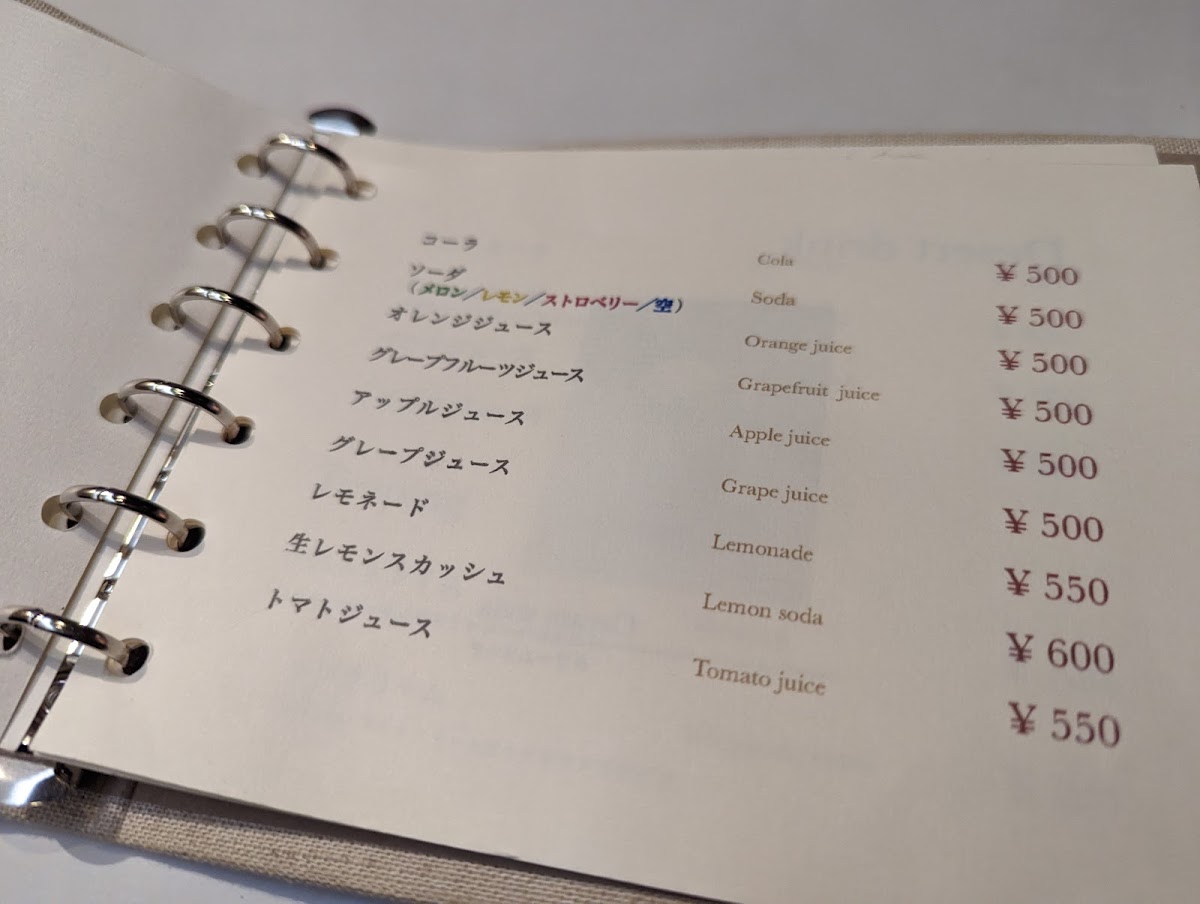 コーラ Cola ¥ 500
ソーダ Soda ¥ 500
(メロン/レモン/ストロベリー/空)
オレンジジュース Orange juice ¥ 500
グレープフルーツジュース Grapefruit juice ¥ 500
アップルジュース Apple juice ¥ 500
グレープジュース Grape juice ¥ 500
レモネード Lemonade ¥ 550
生レモンスカッシュ Lemon soda ¥ 600
トマトジュース Tomato juice ¥ 550